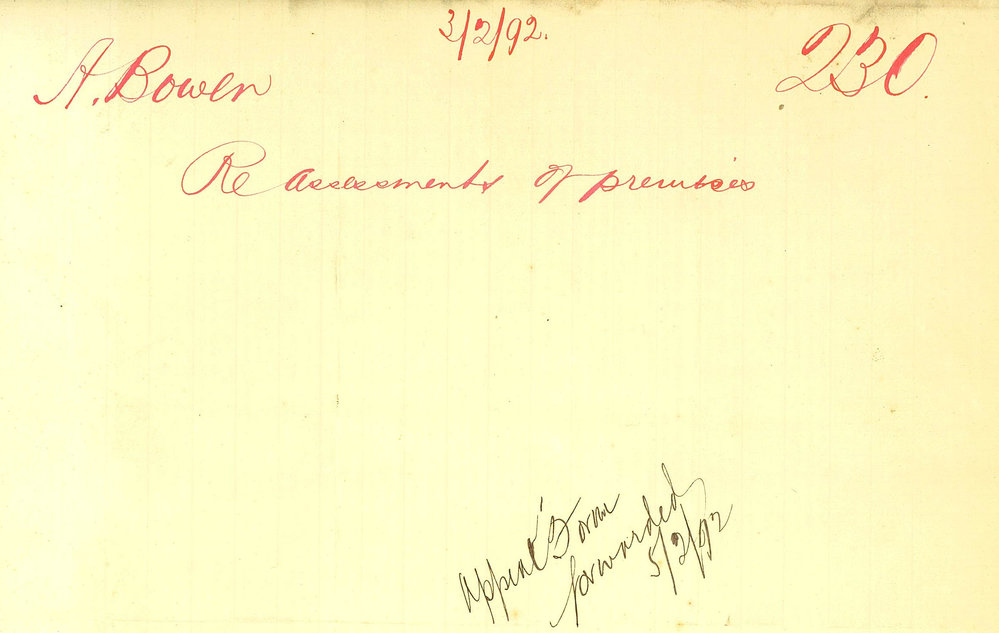 3/2/92.
A. Bowen
230.
Re assessments of premises
Appeal Form
forwarded
5/2/92